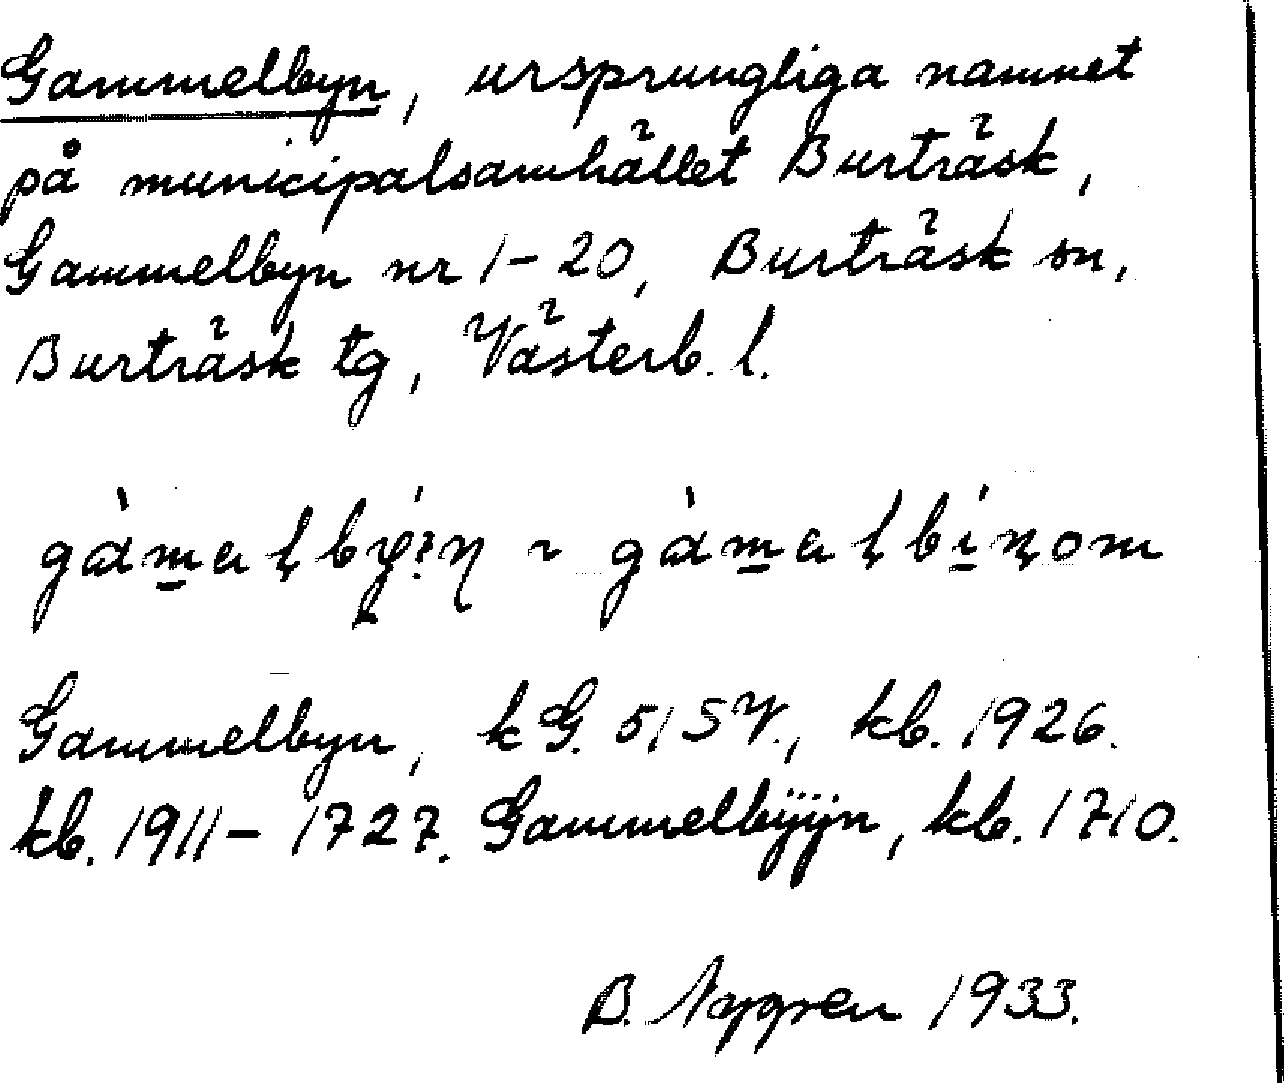 Gammelbyn, ursprungliga namnet
på municipalsamhället Burträsk,
Gammelbyn nr 1-20, Burträsk sn,
Burträsk tg, Västerb. l.
gàmalbýn ~ gàmalbínom
Gammelbyn, kG. 51 SV., kb. 1926.
kb. 1911-1727. Gammelbÿÿn, kb. 1710.
B. Nygren 1933.